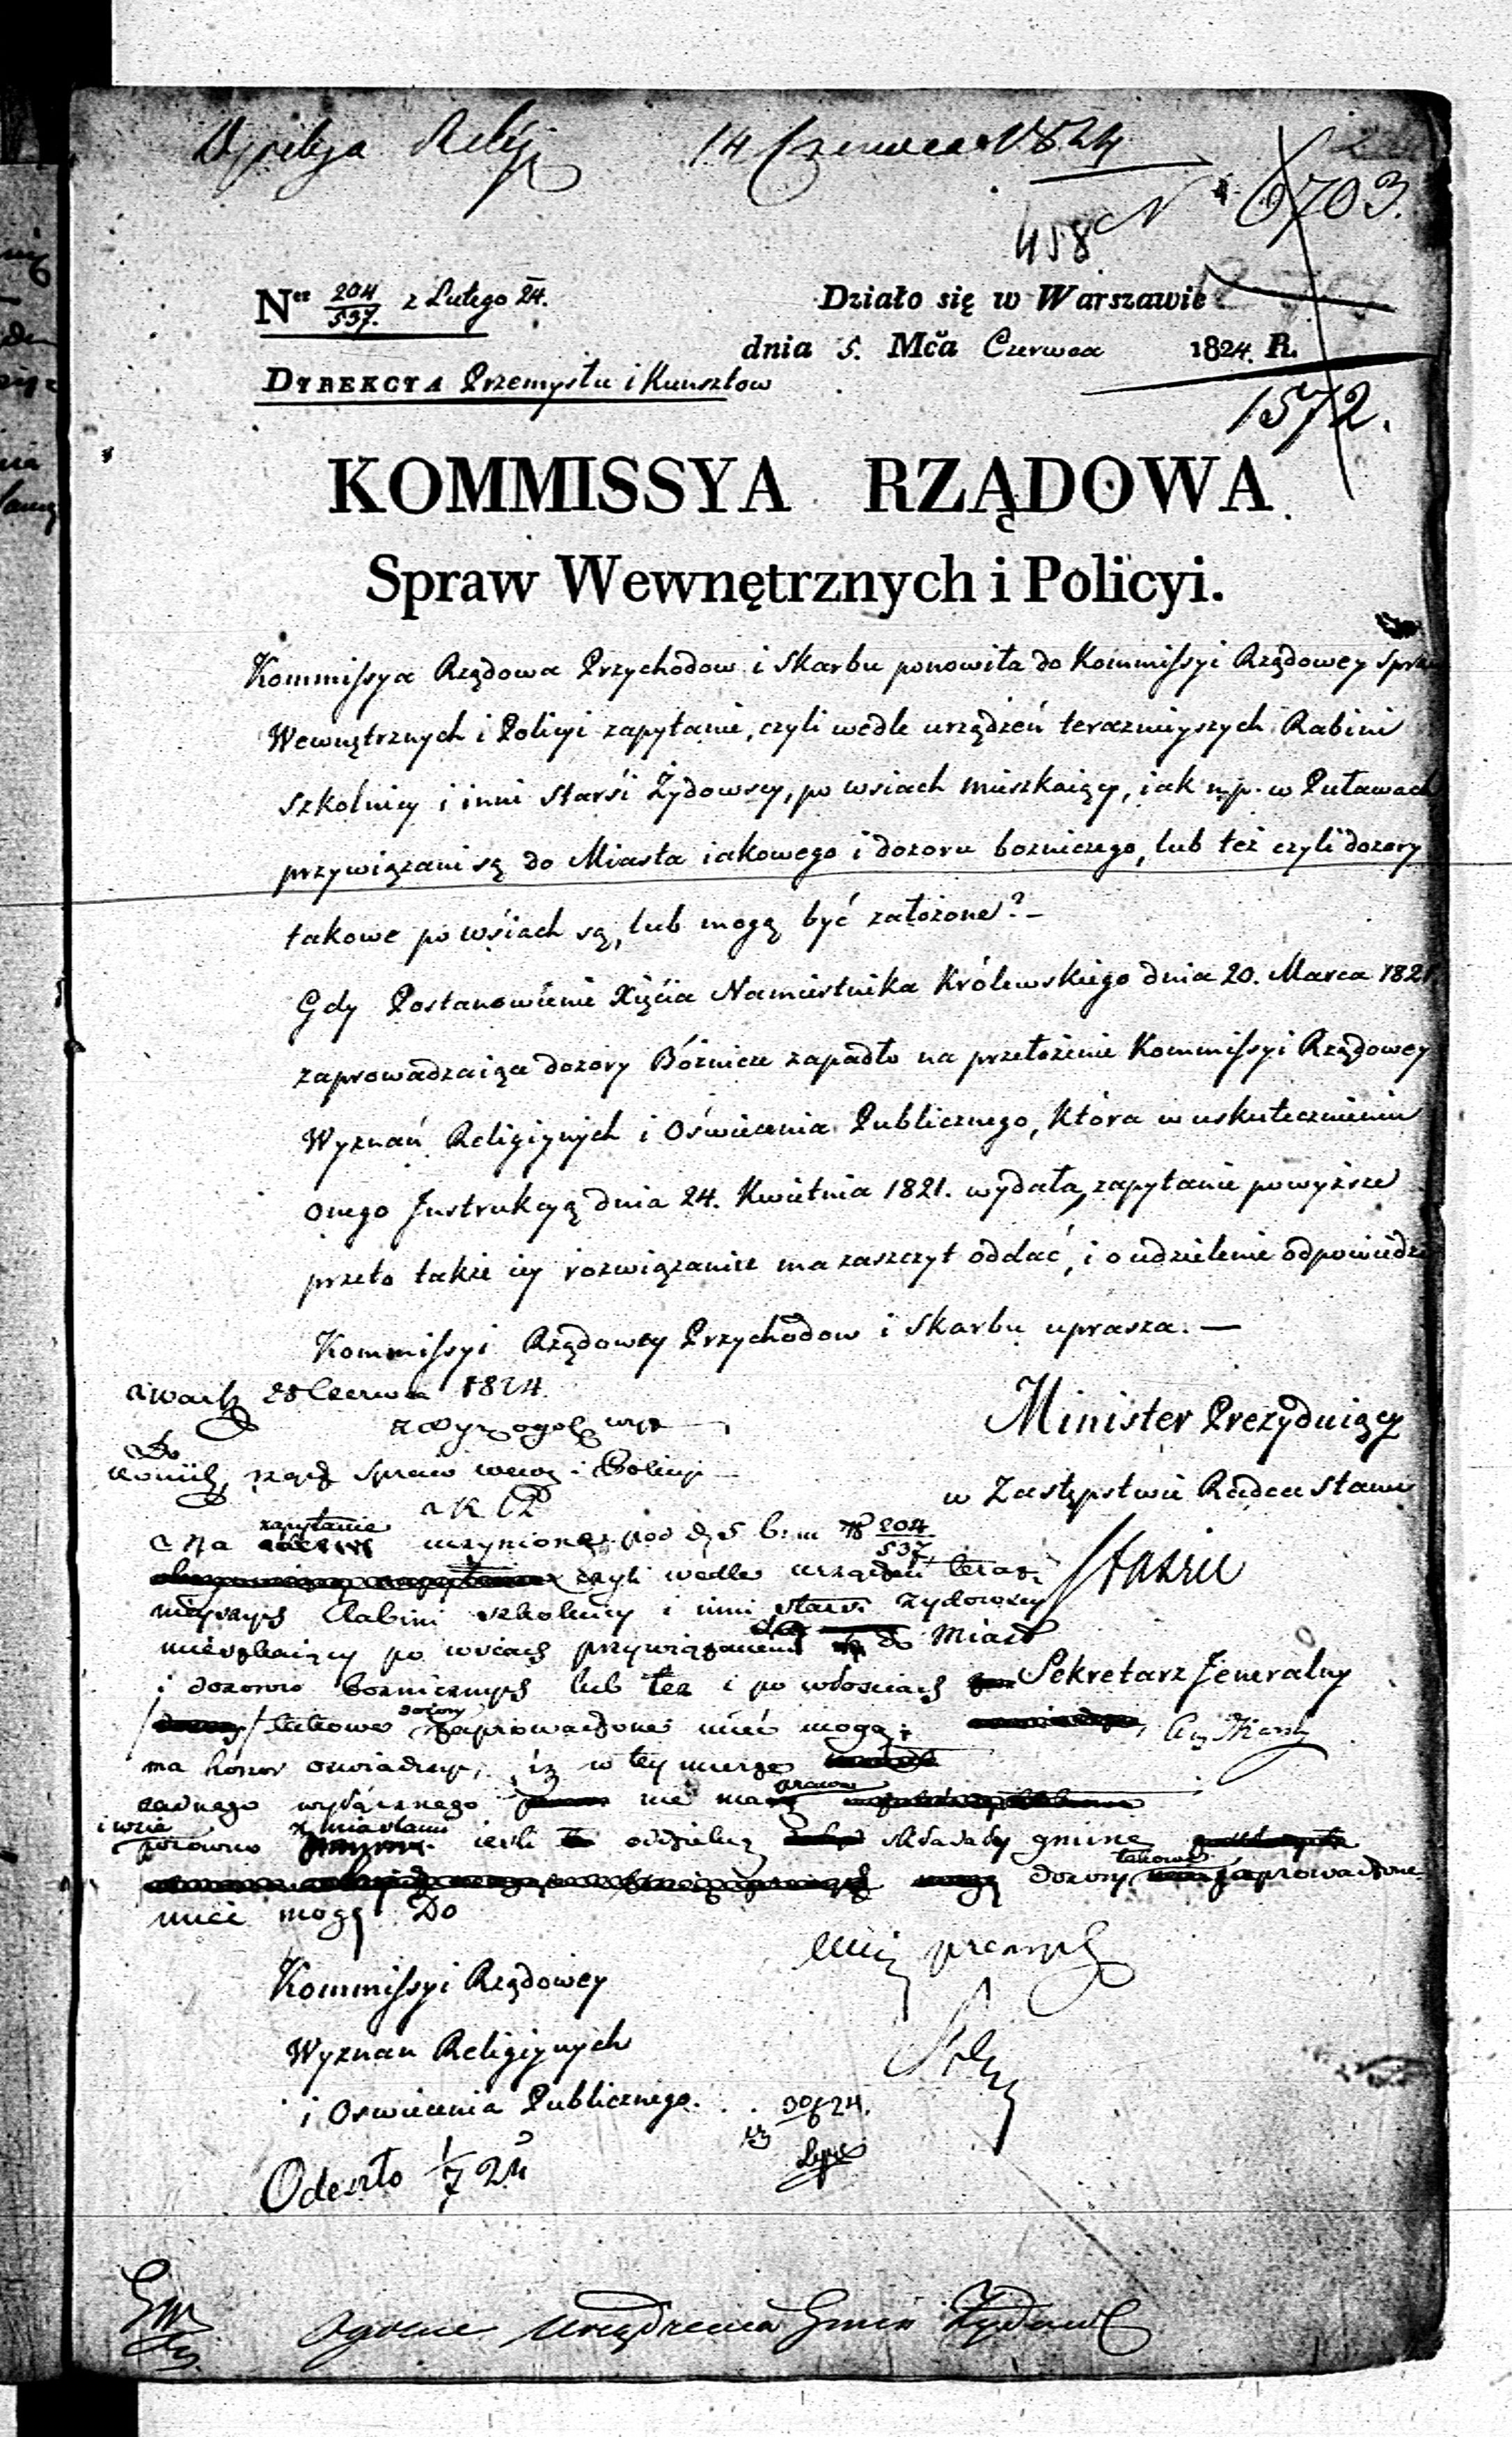 14 Czerwca 1824
N 6703.
458
Nr 204/537. z Lutego 24.
Działo się w Warszawie
dnia 5. Mča Czerwca 1824. R.
DYREKCYA Przemysłu i Kunsztow
1572.
KOMMISSYA RZĄDOWA
Spraw Wewnętrznych i Policyi.
Kommissya Rządowa Przychodow i Skarbu ponowiła do Kommissyi Rządowey
Wewnętrznych i Policyi zapytanie, czyli wedle urządzeń teraznieyszych Rabini
Szkolnicy i inni Starsi Żydowscy, po wsiach mieszkaiący, iak np. w Puławach
przywiązani są do Miasta iakowego i dozoru bozniczego, lub też czyli dozory
takowe po wsiach są, lub mogą być założone? –
Gdy Postanowienie Xięcia Namiestnika Królewskiego dnia 20. Marca 1821
zaprowadzaiące dozory Bóżnicze zapadło na przełożenie Kommissyi Rządowey
Wyznań Religiynych i Oświecenia Publicznego, która w uskutecznieniu
onego Instrukcyą dnia 24. Kwietnia 1821. wydała, zapytanie powyższe
przeto także iey rozwiązanie ma zaszczyt oddać, i o udzielenie odpowiedzi
Kommissyi Rządowey Przychodow i Skarbu uprasza. —
28 Czerwca 1824
Minister Prezyduiący
Do
rząd Spraw wew i Policyi
w Zastępstwie Radca Stanu
Staszic
zapytanie
Na uczynione pod d. 5 b. m. N 204/537
czyli wedle urządzeń teraz
nieyszych Rabini szkolnicy i inni starsi żydowscy
mieszkaiący po wsiach przywiązanemi do Miast
i dozorow bozniczych lub tez i po włosciach
Sekretarz Jeneralny
dozory
takowe zaprowadzone mieć mogą;
ma honor oswiadczyć, iz w tey mierze
prawa
zadnego wyłącznego nie ma
i wsie z miastami
porowno iesli oddzielną składały gminę
takowe
dozory zaprowadzone
mieć mogą Do
Kommissyi Rządowey
Wyznan Religiynych
i Oswiecenia Publicznego.
30/6 24.
Odeszło 1/7 24
Ogolne Urządzenia Gmin Żydows